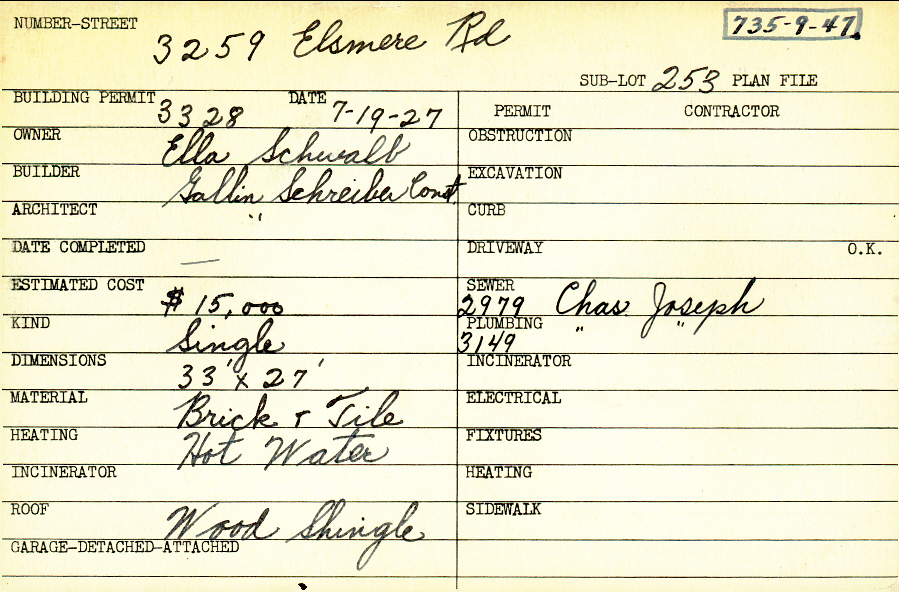 NUMBER-STREET 3259 Elsmere Rd 735-9-47
SUB-LOT 253 PLAN FILE
BUILDING PERMIT 3328 DATE 7-19-27
PERMIT CONTRACTOR
OWNER Ella Schwalb
OBSTRUCTION
BUILDER Gallin Schreiber Const.
EXCAVATION
ARCHITECT "
CURB
DATE COMPLETED —
DRIVEWAY O.K.
ESTIMATED COST $15,000
SEWER 2979 Chas Joseph
KIND Single
PLUMBING 3149 " "
DIMENSIONS 33' x 27'
INCINERATOR
MATERIAL Brick + Tile
ELECTRICAL
HEATING Hot Water
FIXTURES
INCINERATOR
HEATING
ROOF Wood Shingle
SIDEWALK
GARAGE-DETACHED-ATTACHED